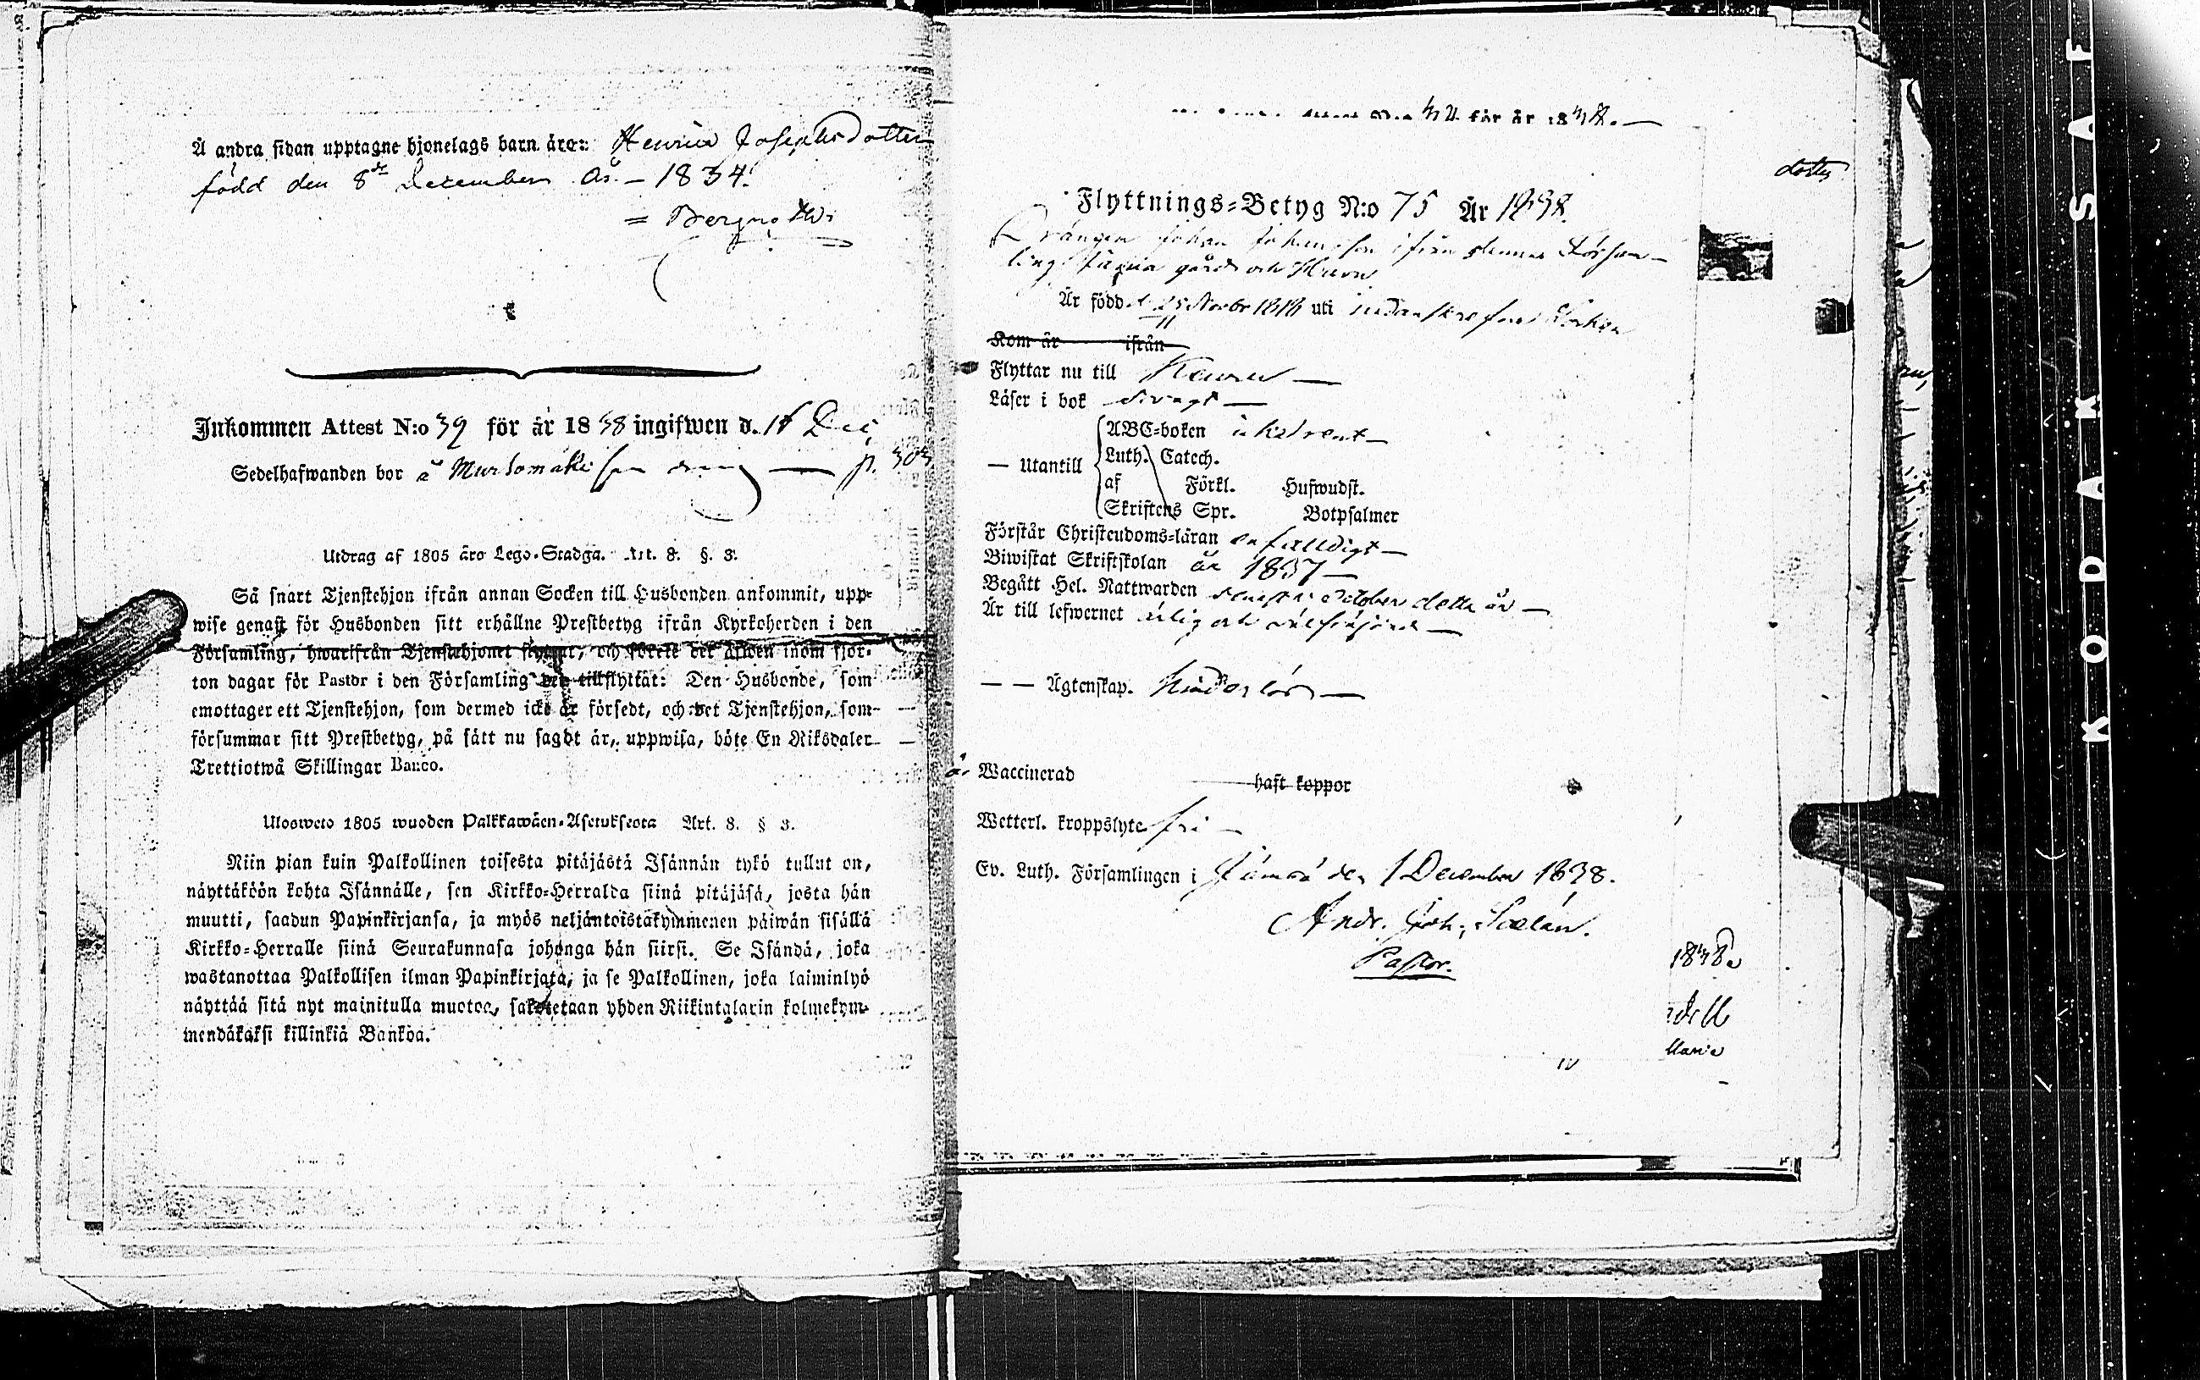 Å andra sidan upptagne hjonelags barn äro: Henrica Josephsdotter
född den 8de December År - 1834.
Inkommen Attest N:o 39 för år 1838 ingifwen d.
Sedelhafwanden bor å p. 303
Utdrag af 1805 års Lego-Stadga. Art. 8. §. 3.
Så snart Tjenstehjon ifrån annan Socken till Husbonden ankommit, upp-
wise genast för Husbonden sitt erhållne Prestbetyg ifrån Kyrkoherden i den
Församling, hwarifrån Tjenstehjonet flyttat, och förete det äfwen inom fjor-
ton dagar för Pastor i den Församling det tillflyttat: Den Husbonde, som
emottager ett Tjenstehjon, som dermed icke är försedt, och det Tjenstehjon, som
försummar sitt Prestbetyg, på sätt nu sagdt är, uppwisa, böte En Riksdaler
Trettiotwå Skillingar Banco.
Ulosweto 1805 wuoden Palkkawäen-Asetuksesta Art. 8. § 3.
Niin pian kuin Palkollinen toisesta pitäjästä Isännän tykö tullut on,
näyttäköön kohta Isännälle, sen Kirkko-Herralda siinä pitäjäsä, josta hän
muutti, saadun Papinkirjansa, ja myös neljäntoistakymmenen päiwän sisällä
Kirkko-Herralle siinä Seurakunnasa johonga hän siirsi. Se Isändä, joka
wastanottaa Palkollisen ilman Papinkirjata, ja se Palkollinen, joka laiminlyö
näyttää sitä nyt mainitulla muotoa, sakotetaan yhden Riikintalarin kolmekym-
mendäkaksi killinkiä Bankoa.
för år 1838.
dotter
Flyttnings-Betyg N:o 75 År 1838.
Drängen Johan Johansson ifrån denna Försam-
ling
Är född d. 25 Novbr 1818 uti
Kom år ifrån
Flyttar nu till Keuru
Läser i bok svagt
ABC-boken
— Utantill Luth. Catech.
af Förkl. Hufwudst.
Skriftens Spr. Botpsalmer
Förstår Christendoms-läran enfalldigt
Biwistat Skriftskolan år 1837
Begått Hel. Nattwarden senast i October detta år
Är till lefwernet ärlig och
— — Ägtenskap. hinderlös
är Waccinerad haft koppor
Wetterl. kroppslyte fri
Ev. Luth. Församlingen i Jämsä den 1 December 1838.
Andr. Joh.
Pastor.
1838
Maria
KODAK SAF